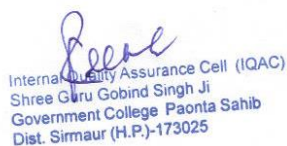 Internal Quality Assurance Cell (IQAC)
Shree Guru Gobind Singh Ji
Government College Paonta Sahib
Dist. Sirmaur (H.P.)-173025